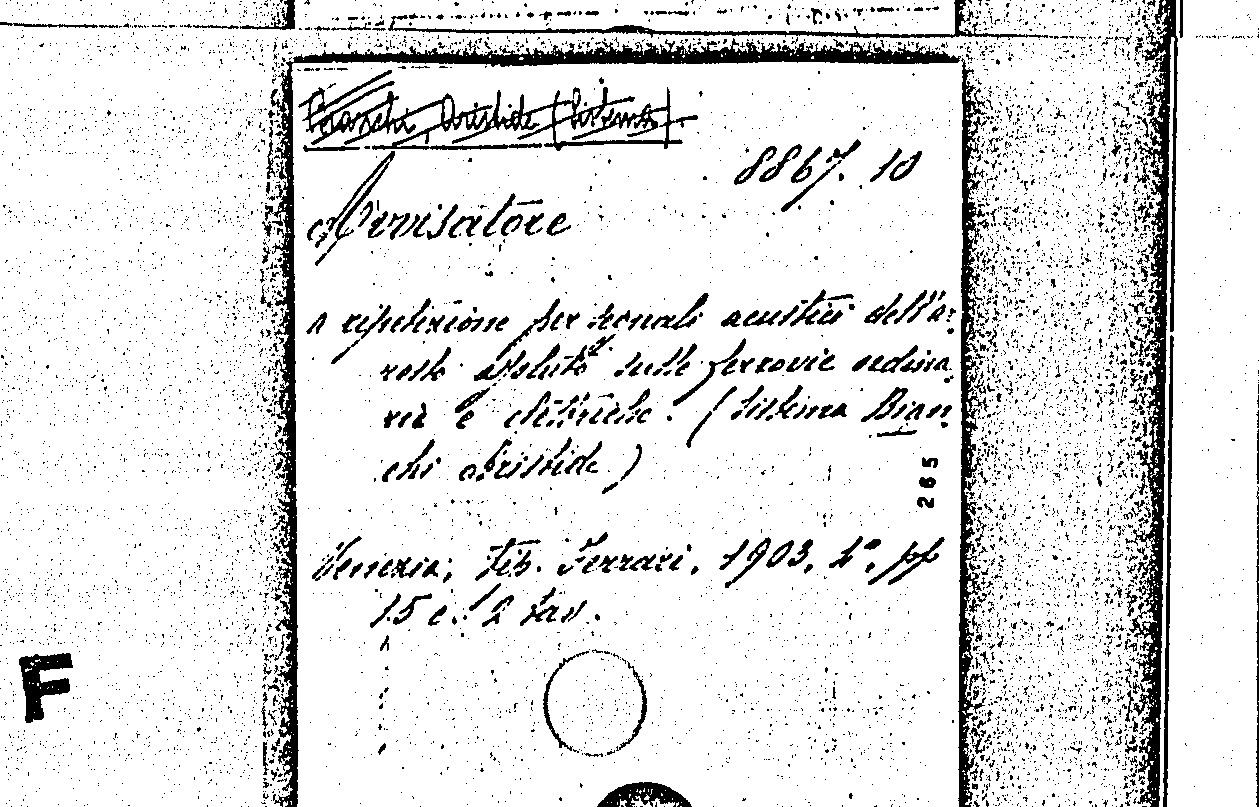 Bianchi, Aristide (Sistema).
8867. 10
Avvisatore
a ripetizione per segnali acustici dell'ar-
resto assoluto sulle ferrovie ordina-
rie e elettriche. (Sistema Bian-
chi Aristide)
265
Venezia, Tip. Ferrari, 1903, 4°, pp
15 c. 2 tav.
F